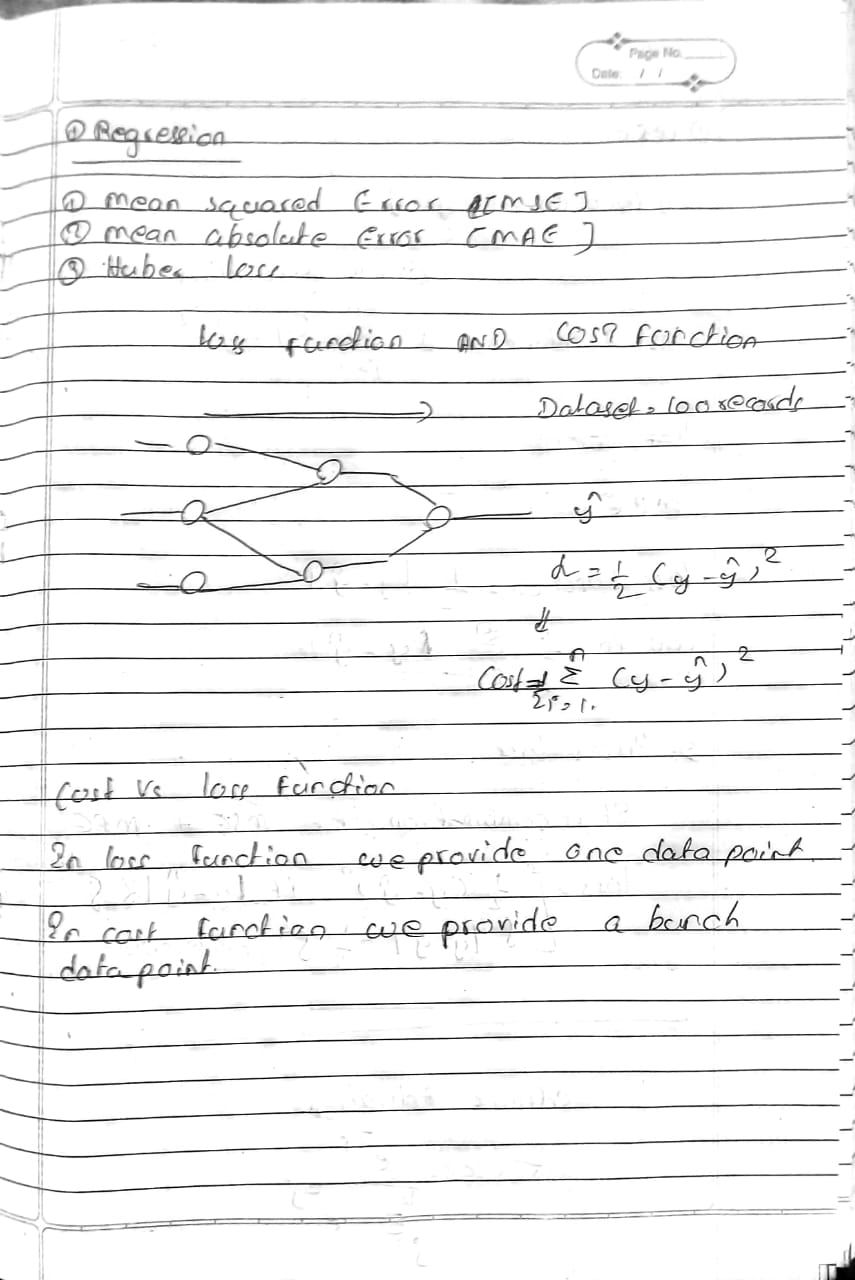 Page No.
Date: / /
① Regression
① mean squared Error [MSE]
② mean absolute Error [MAE]
③ Huber loss
loss function AND COST Function
Dataset = 100 records
ŷ
L = 1/2 (y - ŷ)²
⇓
Cost = 1/2 Σ i=1 n (y - ŷ)²
Cost vs loss Function
In loss function we provide one data point.
In cost function we provide a banch
data point.